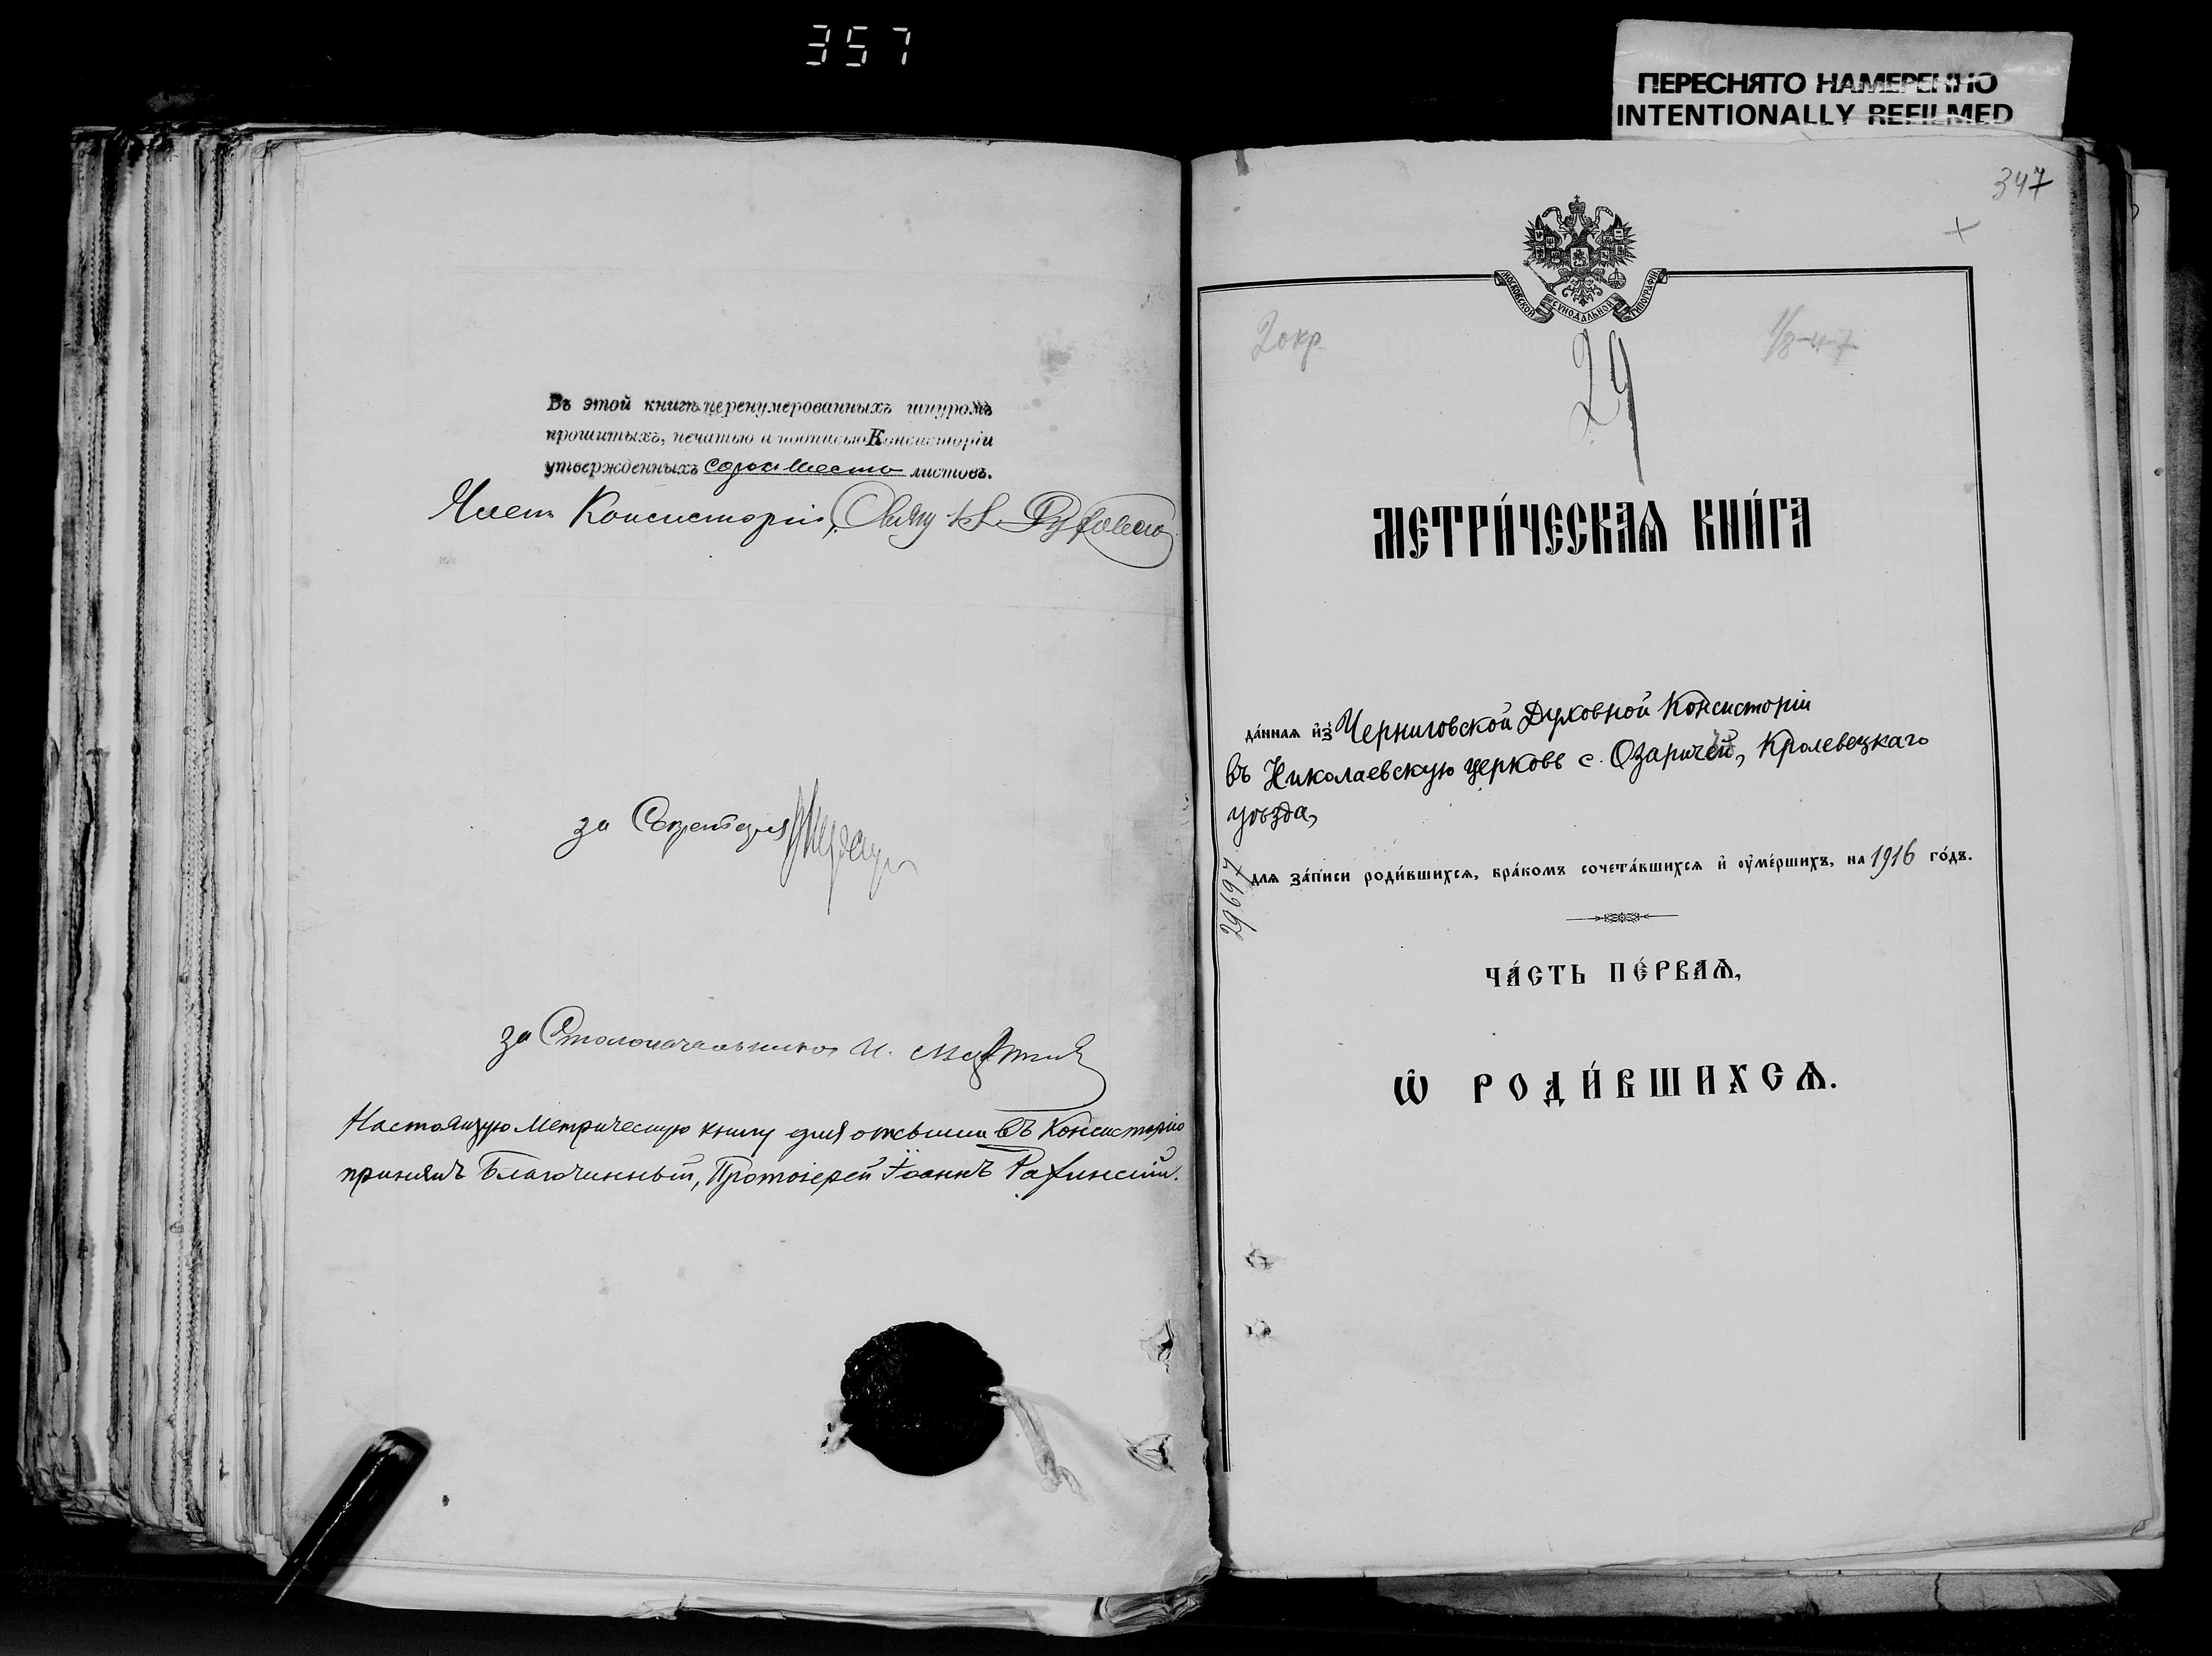 357
ПЕРЕСНЯТО НАМЕРЕННО
INTENTIONALLY REFILMED
Въ этой книгѣ перенумерованныхъ шнуромъ
прошитыхъ, печатью и подписью Консисторіи
утвержденныхъ сорокъ шесть листовъ.
Членъ Консисторіи,
за Секретаря
за Столоначальника И.
Настоящую метрическую книгу для отсылки въ Консисторію
принялъ Благочинный, Протоіерей Іоаннъ
347
МОСКОВСКОЙ СѴНОДАЛЬНОЙ ТИПОГРАФІИ
2 окр.
29
МЕТРИ́ЧЕСКАѦ КНИ́ГА
да́ннаѧ и҆з̾ Черниговской Духовной Консисторіи
въ Николаевскую церковь с. Озаричей, Кролевецкаго
уѣзда,
29697
длѧ за́писи роди́вшихсѧ, бра́комъ сочета́вшихсѧ и҆ ᲂу҆ме́ршихъ, на 1916 го́дъ.
ЧА́СТЬ ПЕ́РВАѦ,
Ѽ РОДИ́ВШИХСѦ.